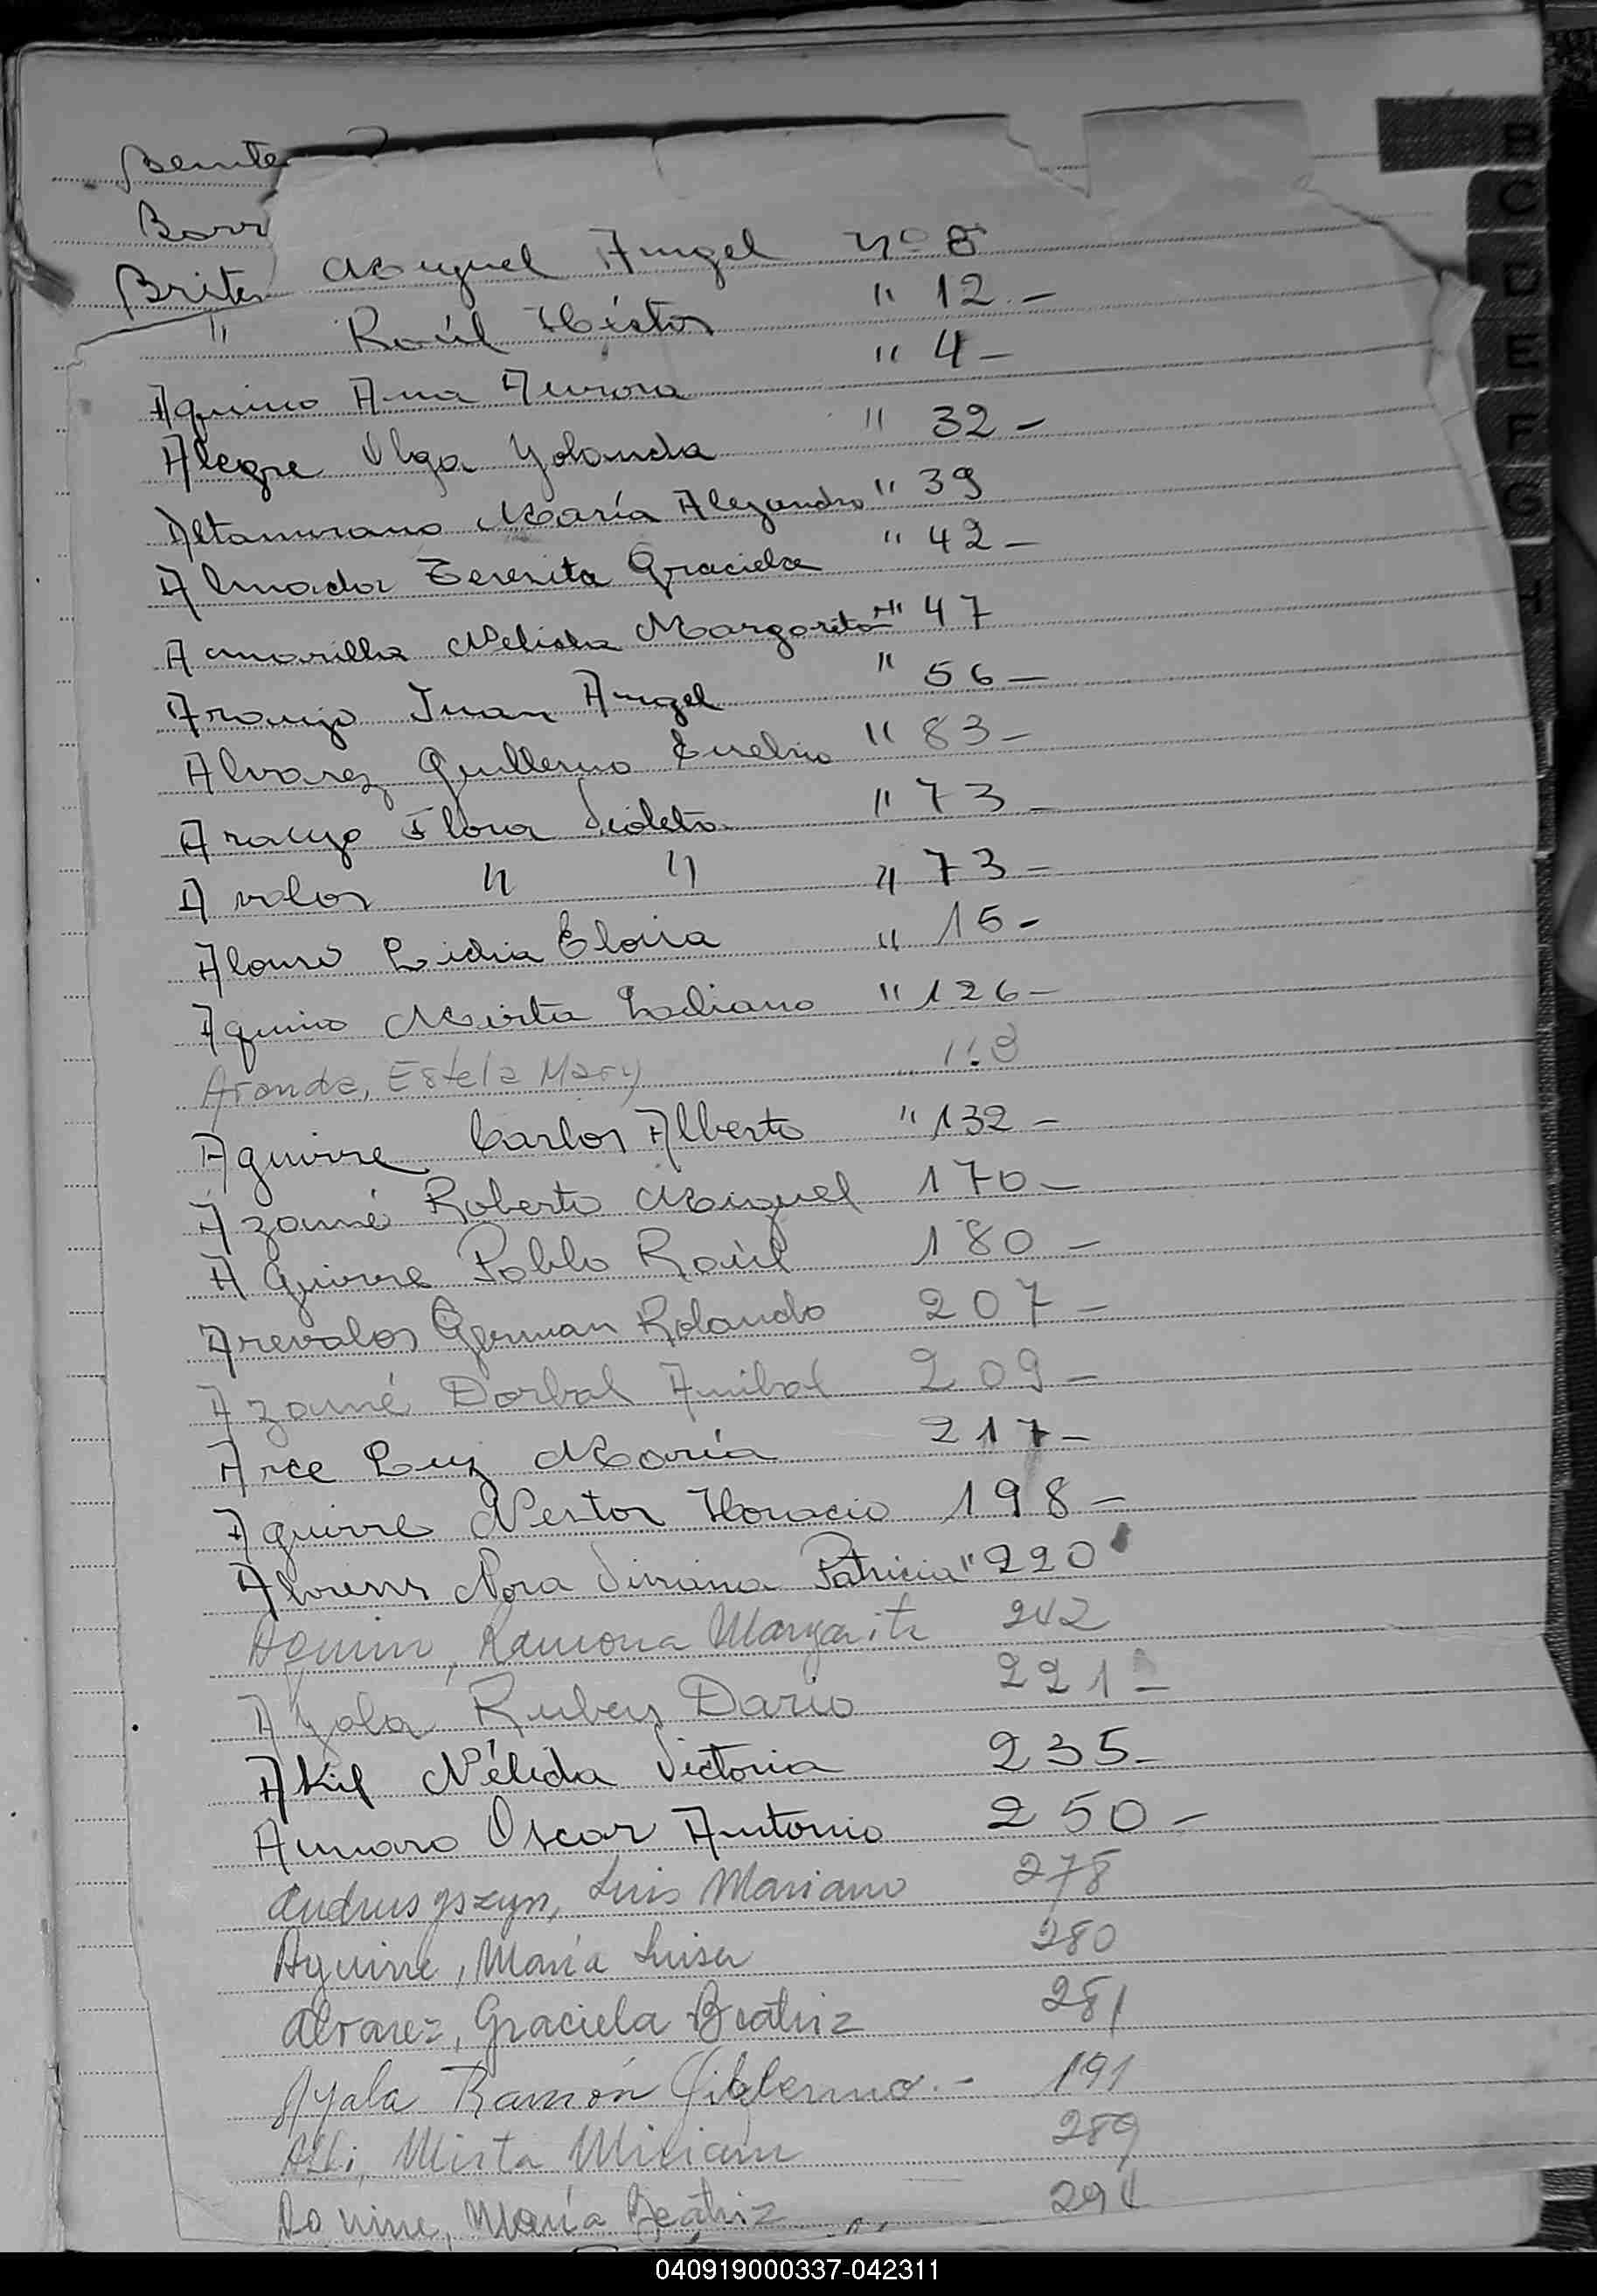 Benite
Barr
Brites
Miguel Angel Nº 8
" Raúl Héctor " 12 -
Aquino Ana Aurora " 4 -
Alegre Olga Yolanda " 32 -
Altamirano María Alejandra " 39
Almada Teresita Graciela " 42 -
Amarilla Nelida Margarita " 47
Araujo Juan Angel " 56 -
Alvarez Guillermo Eusebio " 83 -
Araujo Flora Violeta " 73 -
Avalos " " " 73 -
Alonso Lidia Eloisa " 15 -
Aquino Mirta Liliana " 126 -
Aranda, Estela Mary
Aguirre Carlos Alberto " 132 -
Azamé Roberto Miguel 170 -
Aguirre Pablo Raúl 180 -
Arevalos German Rolando 207 -
Azamé Dorbal Anibal 209 -
Arce Luz María 217 -
Aguirre Nestor Horacio 198 -
Nora Viviana Patricia " 220
Aquino, Ramona Margarita 242
Ayala Ruben Dario 221 -
Akil Nélida Victoria 235 -
Amaro Oscar Antonio 250 -
Andrusyszyn, Luis Mariano 278
Aguirre, María Luisa 280
Alvarez, Graciela Beatriz 281
Ayala Ramón Gillermo. - 191
Mirta Miriam 289
María Beatriz
B
C
D
E
F
G
H
040919000337-042311